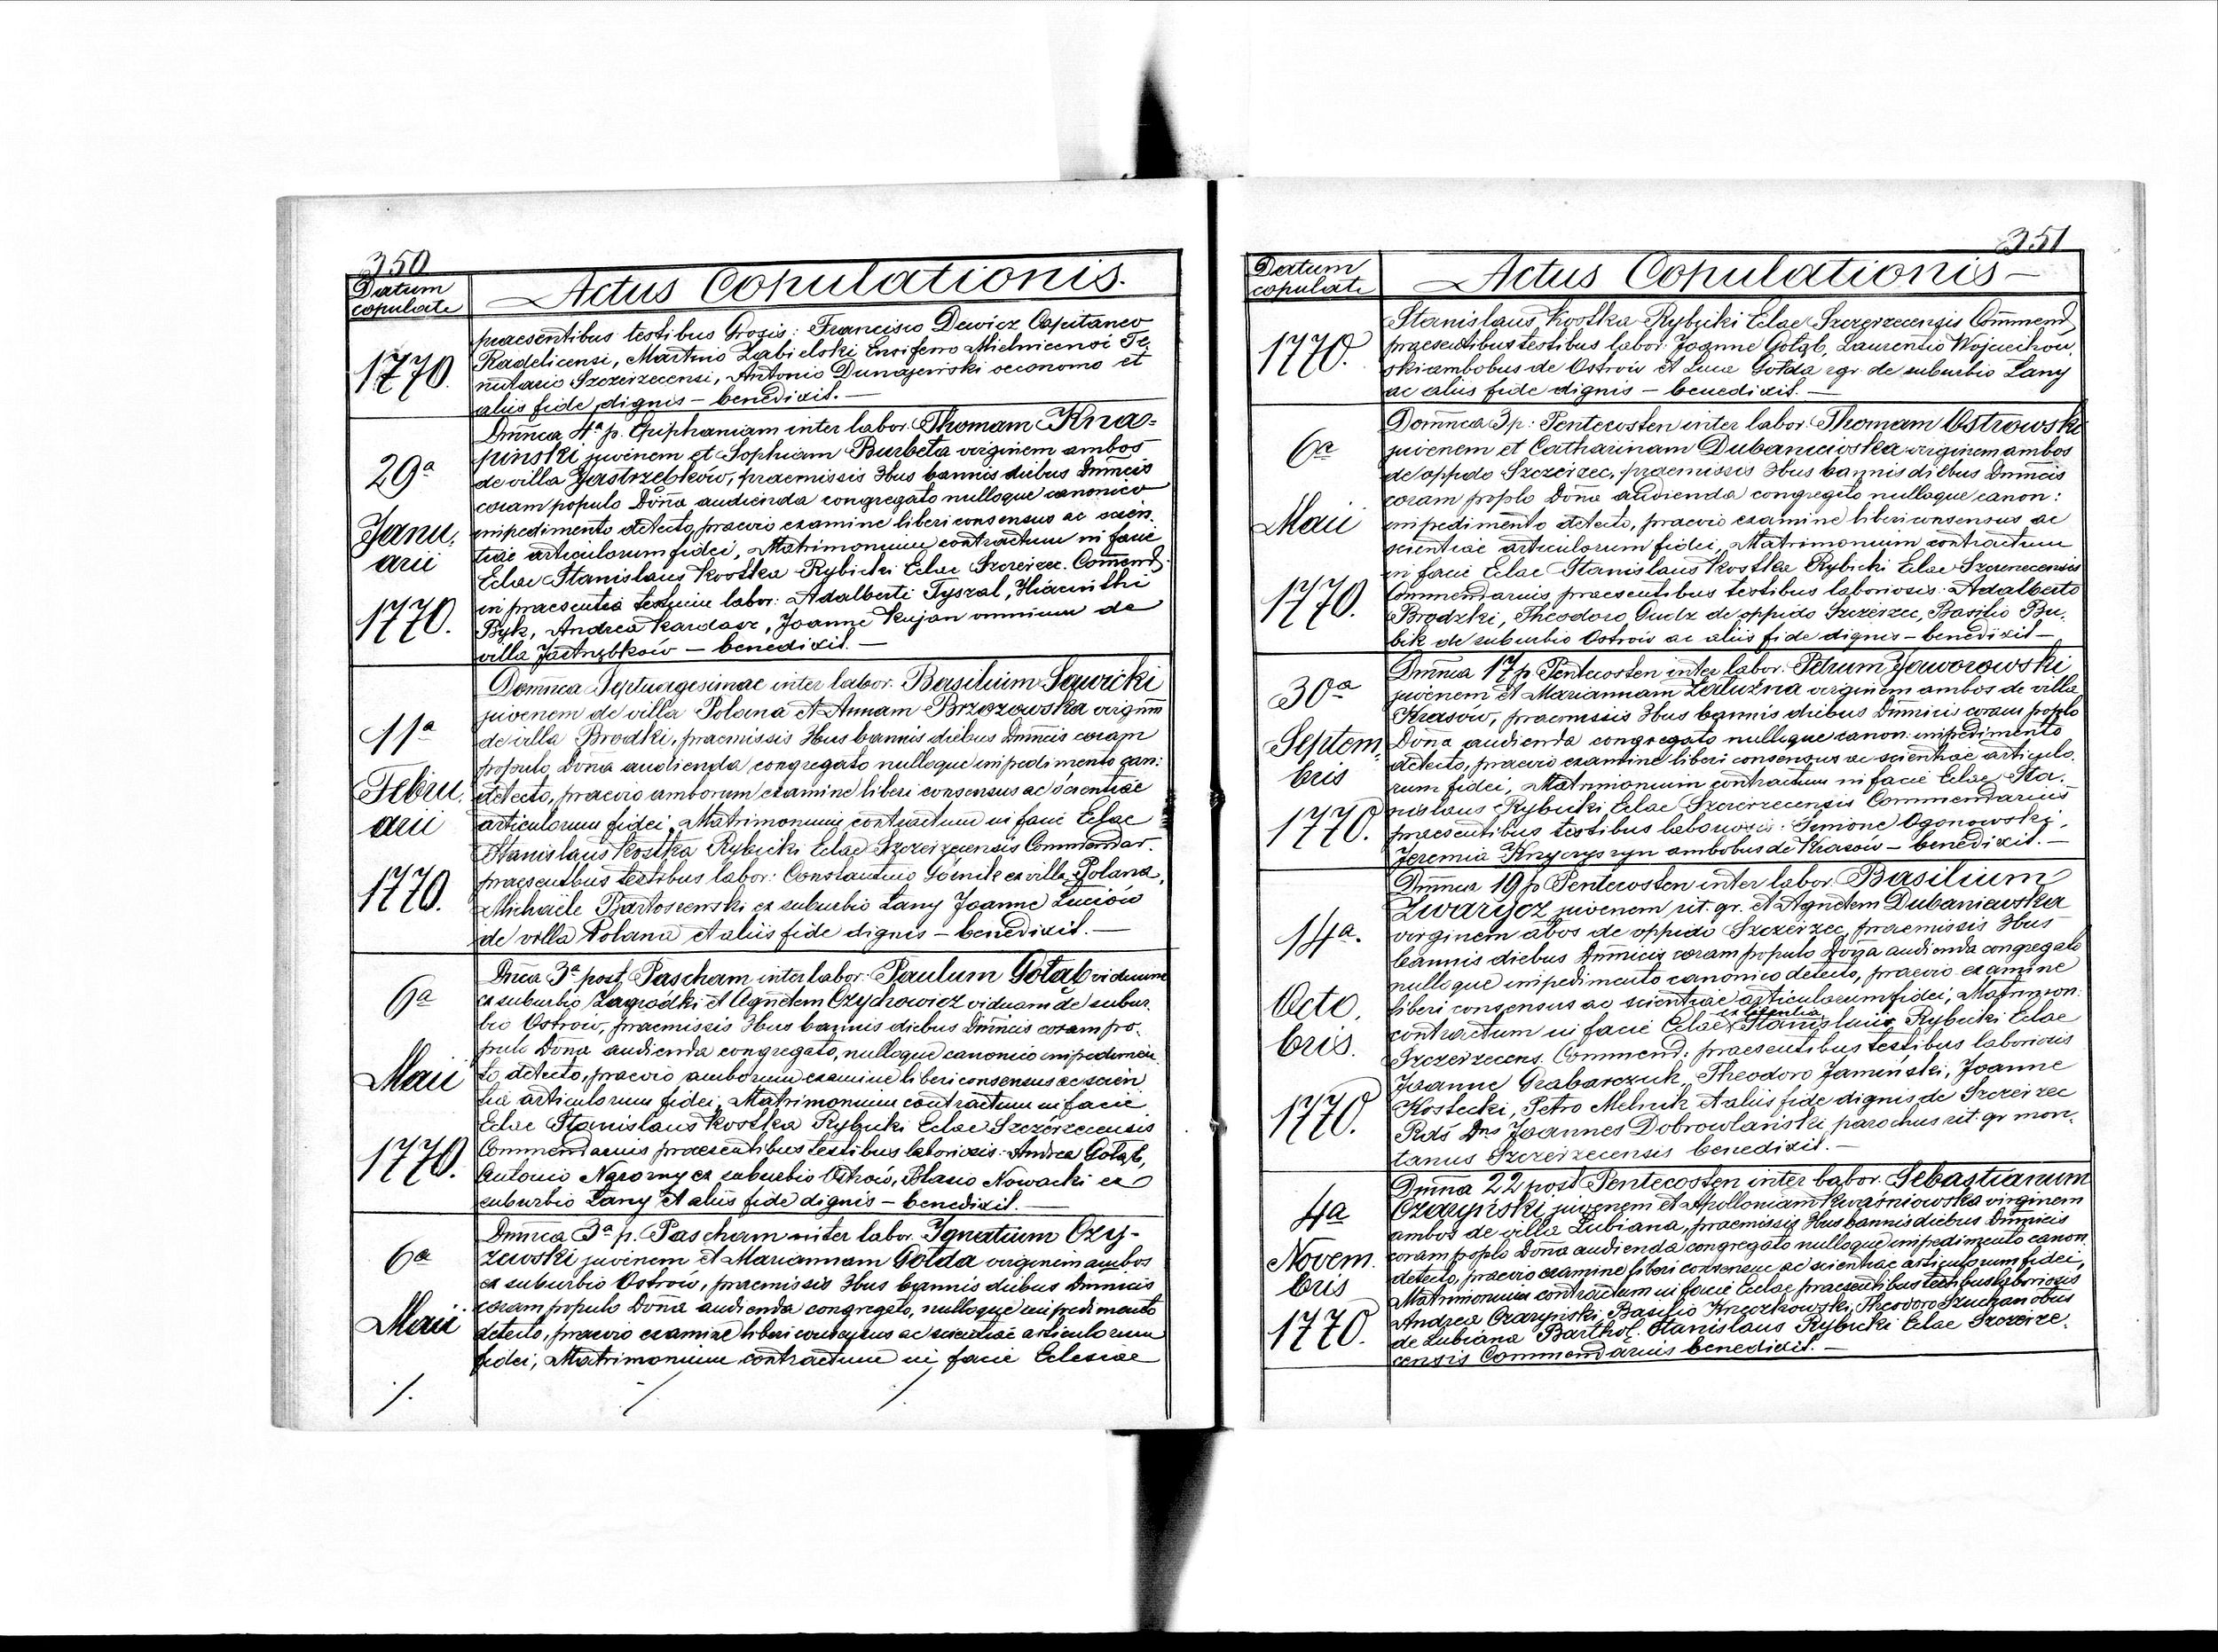 350
Datum
copulate
Actus Copulationis.
1770.
praesentibus testibus Grosis: Francisco Dewicz Capitaneo
Radelicensi, Martino Zabielski Ensifero Mielnicensi Te,
nutario Szczerzecensi, Antonio Dunajewski oeconomo et
aliis fide dignis – benedixit. —
29ª
Janu,
arii
1770.
Dmnca 4ª p. Epiphaniam inter labor. Thomam Kna=
pinski juvenem et Sophiam Burbeta virginem ambos
de villa Jastrzębków, praemissis 3bus bannis diebus Dmncis
coram populo Dona audienda congregato nulloque canonico
impedimento detecto, praevio examine liberi consensus ac scien,
tiae articulorum fidei, Matrimonium contractum in facie
Eclae Stanislaus Kostka Rybicki Eclae Szczerzec. Comend.
in praesentia testium labor: Adalberti Tyszal, Hiacinthi
Byk, Andrea Kardasz, Joanne Kujan omnium de
villa Jastrzębków – benedixit. —
11ª
Febru,
arii
1770.
Domnca Septuagesimae inter labor. Basilium Sawicki
juvenem de villa Polana et Annam Brzozowska virginem
de villa Brodki, praemissis 3bus bannis diebus Dmncis coram
populo Dona audienda congregato nulloque impedimento can:
detecto, praevio amborum examine liberi consensus ac scientiae
articulorum fidei, Matrimonium contractum in facie Eclae
Stanislaus Kostka Rybicki Eclae Szczerzecensis Commendar.
praesentibus testibus labor: Constantino Górnik ex villa Polana,
Michaele Bartoszewski ex suburbio Lany Joanne Luciów
de villa Polana et aliis fide dignis – benedixit. —
6ª
Maii
1770.
Dnca 3ª post Pascham inter labor. Paulum Gołąb viduum
ex suburbio Zagródki et Agnetem Czychowicz viduam de subur,
bio Ostrów, praemissis 3bus bannis diebus Dmncis coram po,
pulo Dona audienda congregato, nulloque canonico impedimen
to detecto, praevio amborum examine liberi consensus ac scien
tia articulorum fidei, Matrimonium contractum in facie
Eclae Stanislaus Kostka Rybicki Eclae Szczerzecensis
Commendarius praesentibus testibus laboriosis: Andrea Gołąb,
Antonio Nagorny ex suburbio Ostrów, Blasio Nowacki ex
suburbio Lany et aliis fide dignis – benedixit. —
6ª
Maii
Dmnca 3ª p. Pascham inter labor. Ignatium Czy-
zewski juvenem et Mariannam Gołda virginem ambos
ex suburbio Ostrów, praemissis 3bus bannis diebus Dmnicis
coram populo Dona audienda congregato, nulloque impedimento
detecto, praevio examine liberi consensus ac scientiae articulorum
fidei, Matrimonium contractum in facie Eclesiae
351
Datum
copulate
Actus Copulationis –
1770.
Stanislaus Kostka Rybicki Eclae Szczerzecensis Commend,
praesentibus testibus labor: Joanne Gołąb, Laurentio Wojciechow,
ski ambobus de Ostrów et Luca Gołda rgr de suburbio Lany
ac aliis fide dignis – benedixit. —
6ª
Maii
1770.
Domnca 3 p: Pentecosten inter labor. Thomam Ostrowski
juvenem et Catharinam Dubaniewska virginem ambos
de oppido Szczerzec, praemissis 3bus bannis diebus Dnmcis
coram poplo Dona audienda congregato nulloque canon:
impedimento detecto, praevio examine liberi consensus ac
scientiae articulorum fidei, Matrimonium contractum
in facie Eclae Stanislaus Kostka Rybicki Eclae Szczerzecensis
Commendarius praesentibus testibus laboriosis: Adalberto
Brodzki, Theodoro Gudz de oppido Szczerzec, Basilio Bu,
bik de suburbio Ostrów ac aliis fide dignis – benedixit –
30ª
Septem,
bris
1770.
Dmnca 17 p Pentecosten inter labor. Petrum Jaworowski
juvenem et Mariannam Załużna virginem ambos de villa
Krasów, praemissis 3bus bannis diebus Dmnicis coram poplo
Dona audienda congregato nulloque canon: impedimento
detecto, praevio examine liberi consensus ac scientiae articulo,
rum fidei, Matrimonium contractum in facie Eclae Sta,
nislaus Rybicki Eclae Szczerzecensis Commendarius
praesentibus testibus laboriosis: Simione Ogonowski,
Jeremia Krzyczyszyn ambobus de Krasow – benedixit. —
14ª.
Octo,
bris.
1770.
Dmnca 19 p Pentecosten inter labor. Basilium
Zwarycz juvenem rit. gr. et Agnetem Dubaniewska
virginem abos de oppido Szczerzec, praemissis 3bus
bannis diebus Dmnicis coram populo Dona audienda congregato
nulloque impedimento canonico detecto, praevio examine
liberi consensus ac scientiae articulorum fidei, Matrimon:
contractum in facie Eclae ex licentia Stanislaus Rybicki Eclae
Szczerzecens. Commend: praesentibus testibus laboriosis
Joanne Grabarczuk Theodoro Jamiński, Joanne
Kostecki, Petro Melnik et aliis fide dignis de Szczerzec
Rds Dns Joannes Dobrowlański parochus rit. gr mon,
tanus Szczerzecensis benedixit. —
4ª
Novem.
bris
1770.
Dmnca 22 post Pentecosten inter labor. Sebastianum
Czaryński juvenem et Apolloniam Kwaśniowska virginem
ambos de villa Lubiana, praemissis 3bus bannis diebus Dmnicis
coram poplo Dona audienda congregato nulloque impedimento canon.
detecto, praevio examine liberi consensus ac scientiae articulorum fidei,
Matrimonium contractum in facie Eclae praesentibus testibus laboriosis
Andrea Czaryński Basilio Kreczkowski, Theodoro Szuchan obus
de Lubiana Barthol. Stanislaus Rybicki Eclae Szczerze,
censis Commendarius benedixit. —